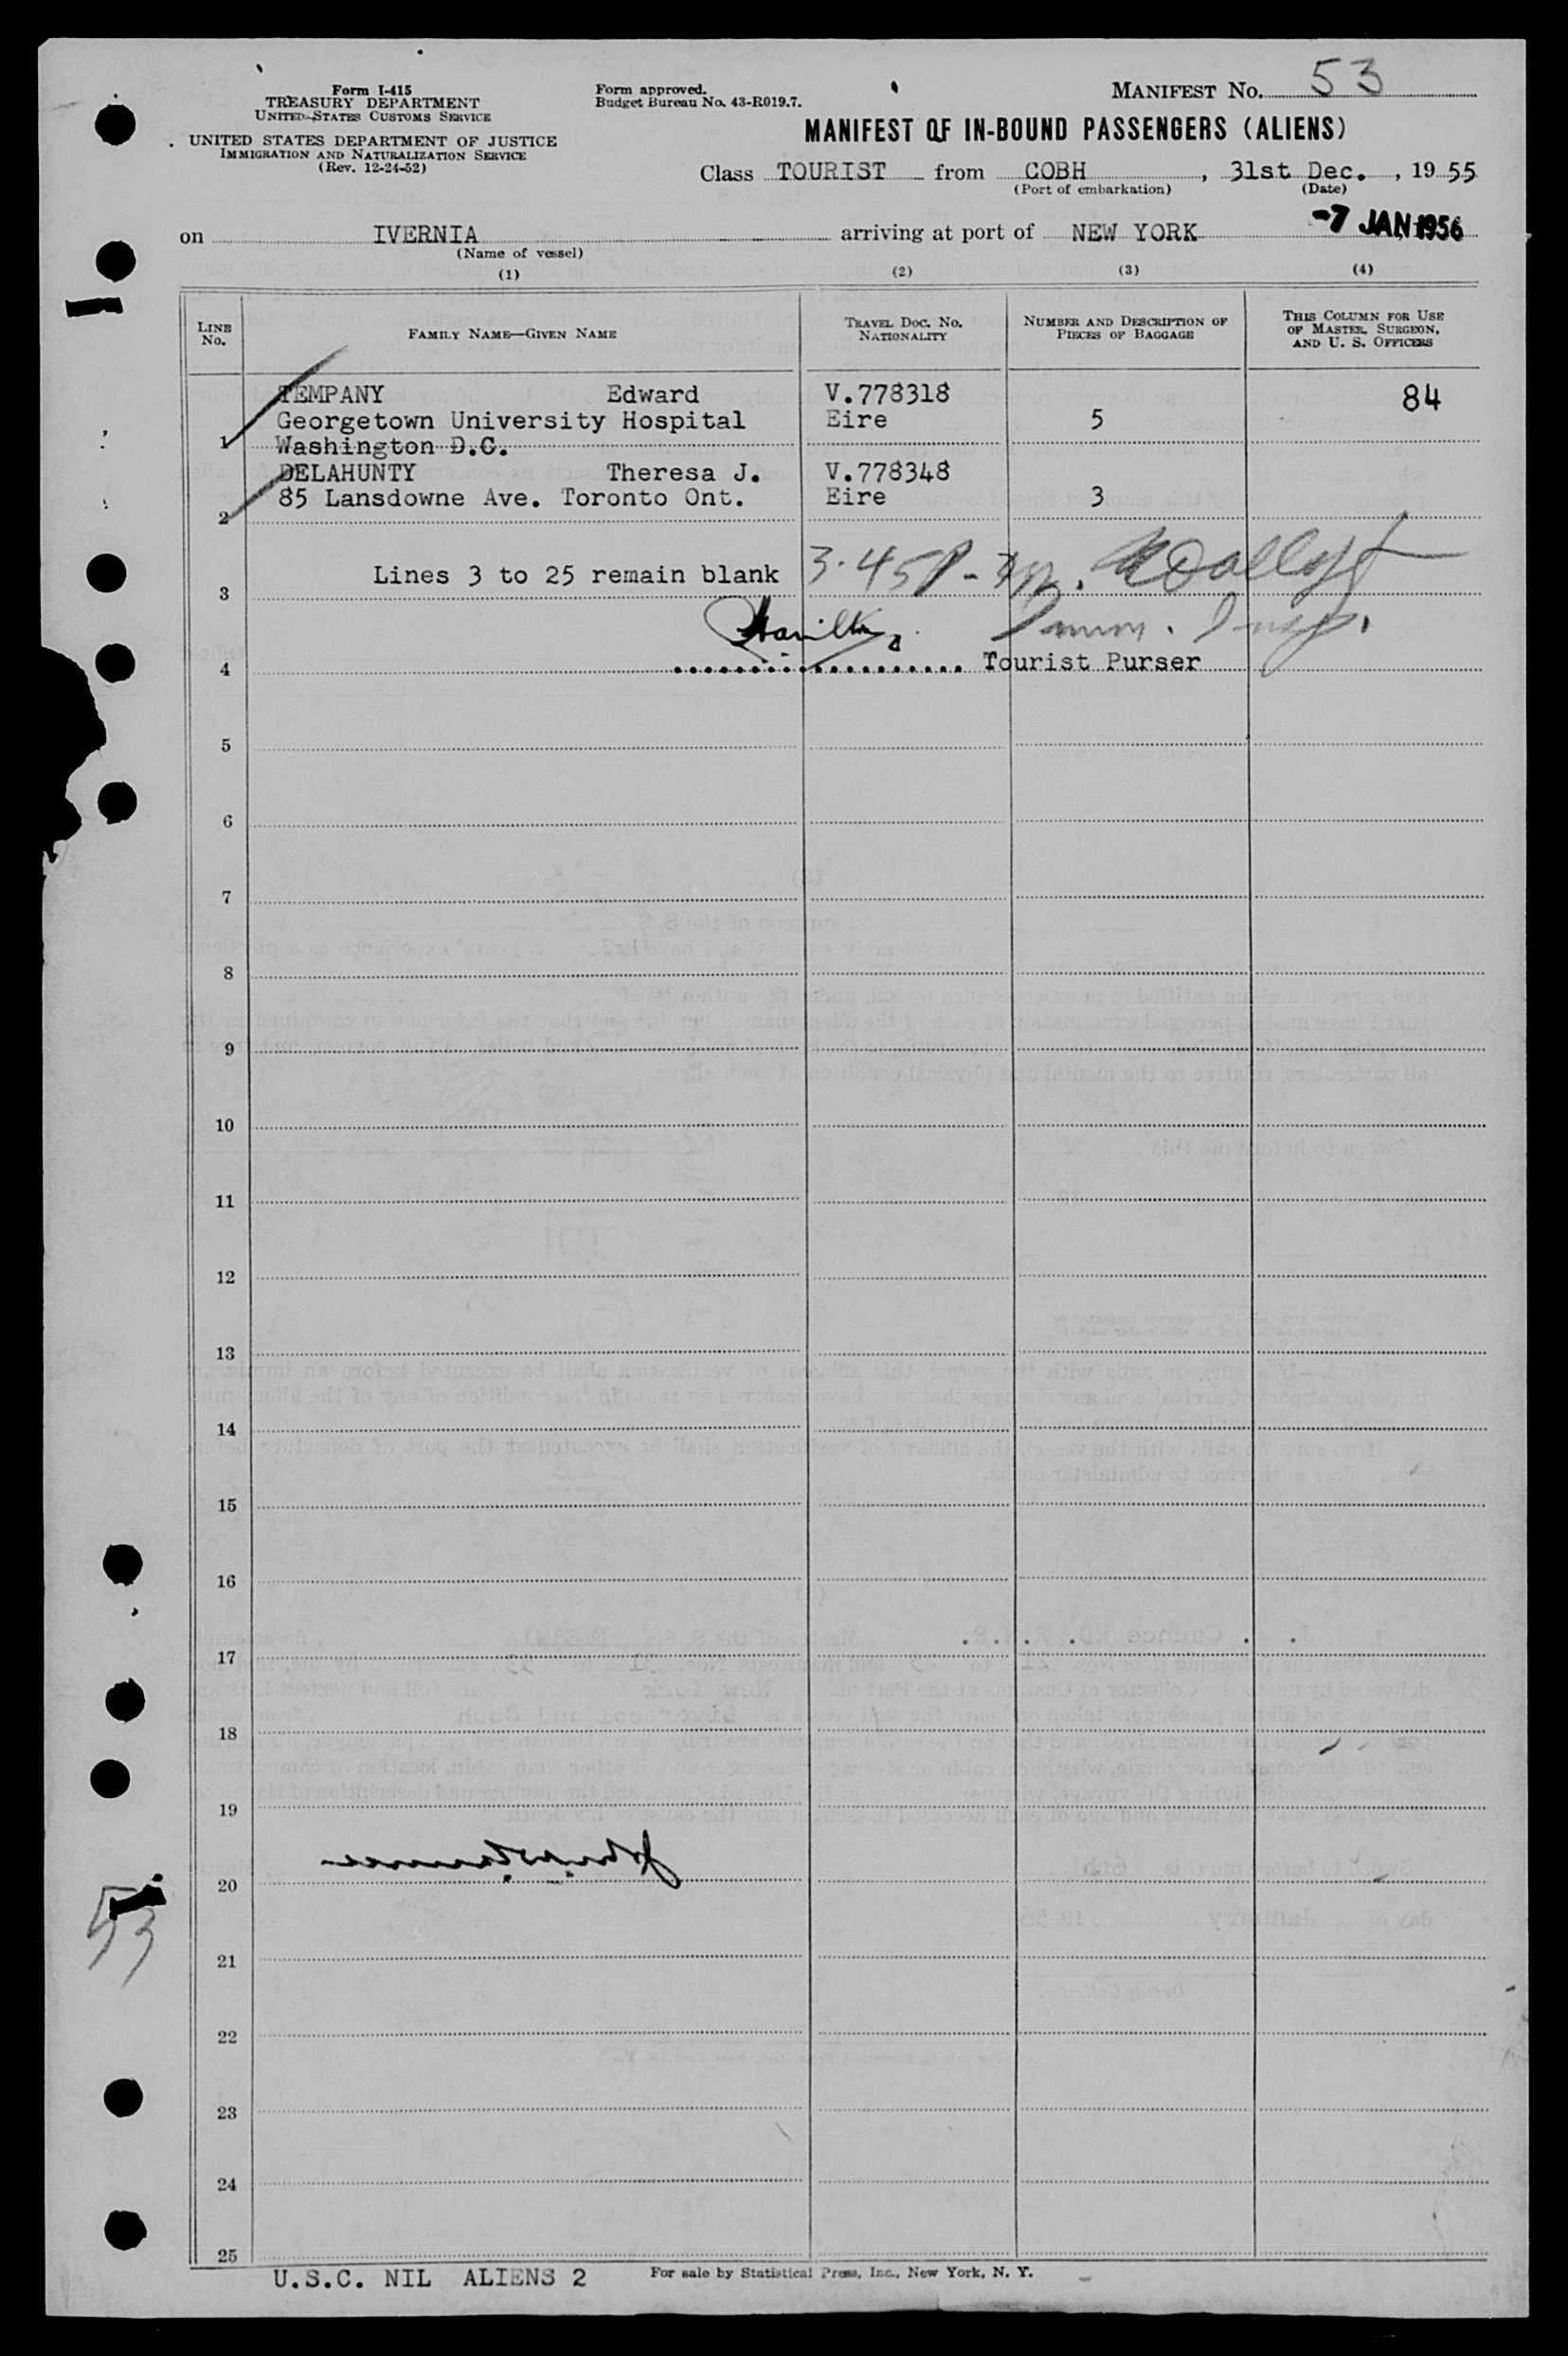 Form I-415
TREASURY DEPARTMENT
UNITED STATES CUSTOMS SERVICE
UNITED STATES DEPARTMENT OF JUSTICE
IMMIGRATION AND NATURALIZATION SERVICE
(Rev. 12-24-52)
Form approved.
Budget Bureau No. 43-R019.7.
MANIFEST NO. 53
MANIFEST OF IN-BOUND PASSENGERS (ALIENS)
Class TOURIST from COBH, 31st Dec., 1955
(Port of embarkation) (Date)
on IVERNIA arriving at port of NEW YORK -7 JAN 1956
(Name of vessel)
(1) (2) (3) (4)
LINE No. FAMILY NAME—GIVEN NAME TRAVEL DOC. NO. NATIONALITY NUMBER AND DESCRIPTION OF PIECES OF BAGGAGE THIS COLUMN FOR USE OF MASTER, SURGEON, AND U. S. OFFICERS
TEMPANY Edward V.778318 84
Georgetown University Hospital Eire 5
1 Washington D.C.
DELAHUNTY Theresa J. V.778348
85 Lansdowne Ave. Toronto Ont. Eire 3
2
Lines 3 to 25 remain blank 3.45P-
3
Immn. Insp.
4 Tourist Purser
5
6
7
8
9
10
11
12
13
14
15
16
17
18
19
20
53
21
22
23
24
25
U.S.C. NIL ALIENS 2 For sale by Statistical Press, Inc., New York, N. Y.